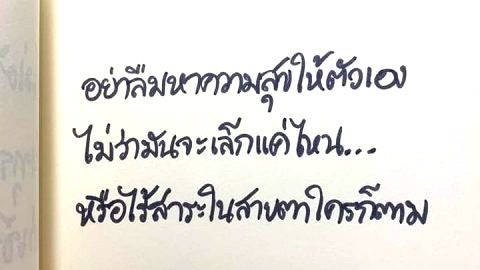 อย่าลืมหาความสุขให้ตัวเอง
ไม่ว่ามันจะเล็กแค่ไหน...
หรือไร้สาระในสายตาใครก็ตาม